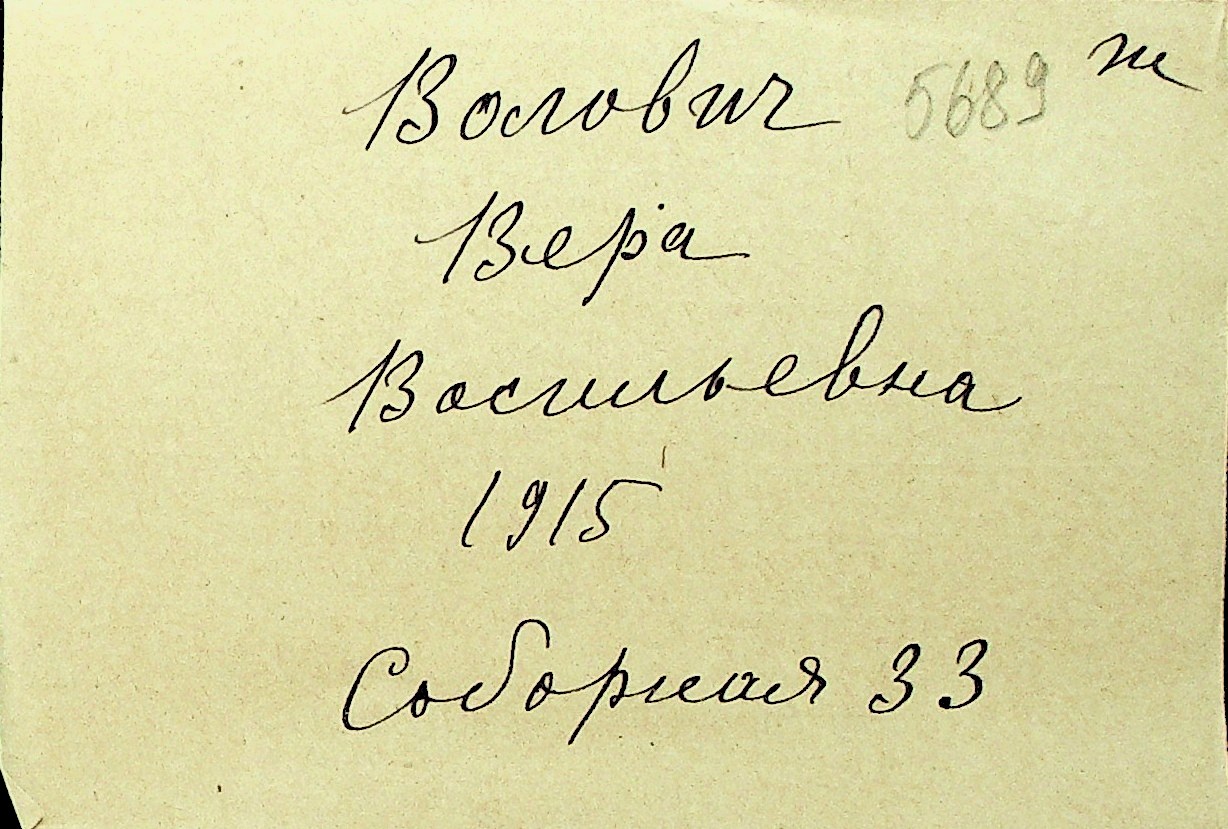 Волович 5689 ж
Вера
Васильевна
1915
Соборная 33